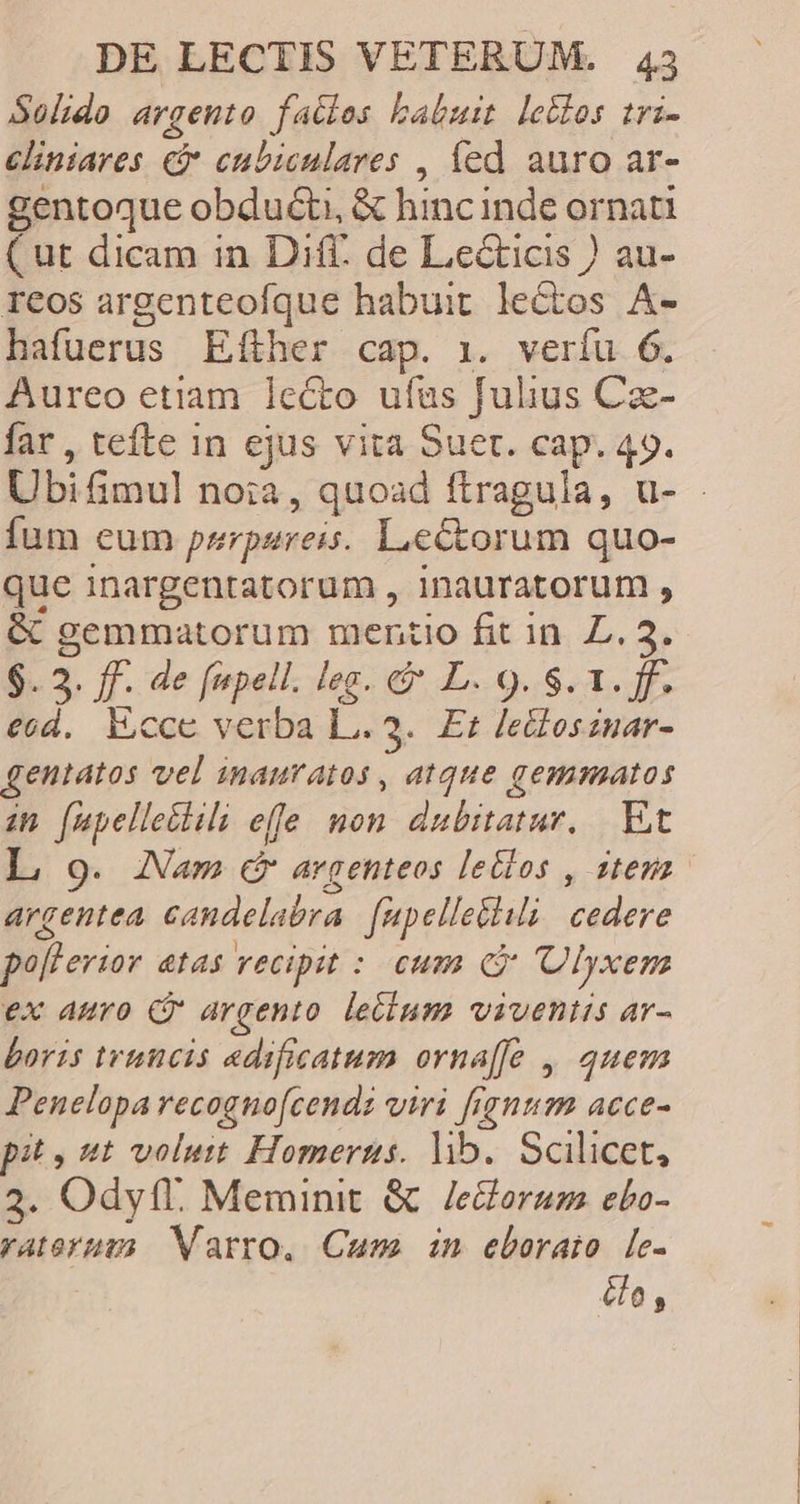 DE LECTIS VETERUM. 43
Solido argento factos habuit lectos tri-
cliniares & cubiculares , ſed auro ar-
gentoque obducti, & hinc inde ornati
( ut dicam in Diſſ. de Lecticis ) au-
reos argenteoſque habuit lectos A-
haſuerus Eſther cap. 1. verſu 6.
Aureo etiam lecto uſus Julius Cæ-
ſar , teſte in ejus vita Suet. cap. 49.
Ubi ſimul nota, quoad ſtragula, u-
ſum eum purpureis. Lectorum quo-
que inargentatorum , inauratorum ,
& gemmatorum mentio fit in L. 3.
§. 3. ff. de ſupell. leg. & L. 9. §. 1. ff.
eod. Ecce verba L. 3. Et lectos inar-
gentatos vel inauratos , atque gemmatos
in ſupellectili eſſe non dubitatur. Et
L 9. Nam & argenteos lectos , item
argentea candelabra ſupellectili cedere
poſterior ætas recipit : cum & Ulyxem
ex auro & argento lectum viventis ar-
boris truncis ædificatum ornaſſe , quem
Penelopa recognoſcendi viri ſignum acce-
pit , ut voluit Homerus. lib. Scilicet,
3. Odyſſ. Meminit & lectorum ebo-
ratorum Varro. Cum in eborato le-
cto ,